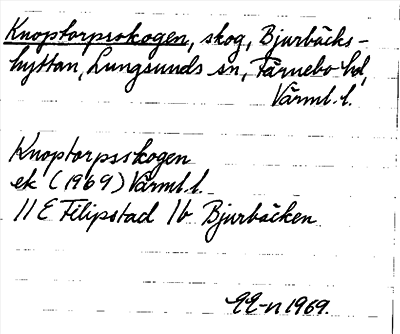 Knoptorpsskogen, skog, Bjurbäcks-
hyttan, Lungsunds sn, Färnebo hd,
Värml. l.
Knoptorpsskogen
ek (1969) Värml. l.
11 E Filipstad 1b Bjurbäcken
1969.